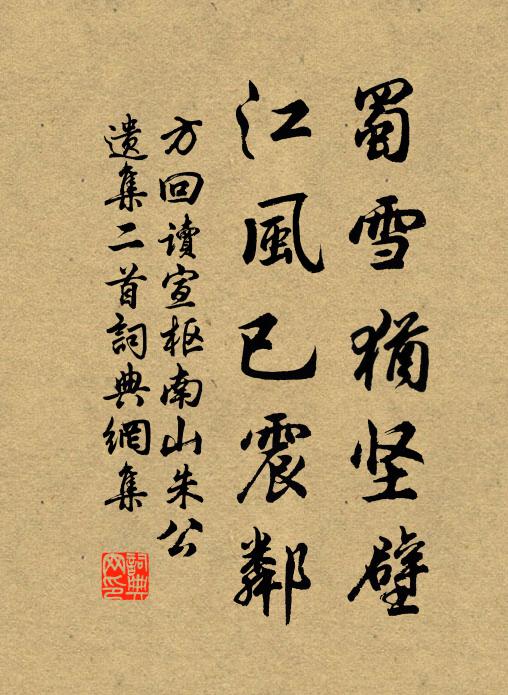 蜀雪犹坚壁
江風已震鄰
方回读宣枢南山朱公
遗集二首詞典網集
詞典網印